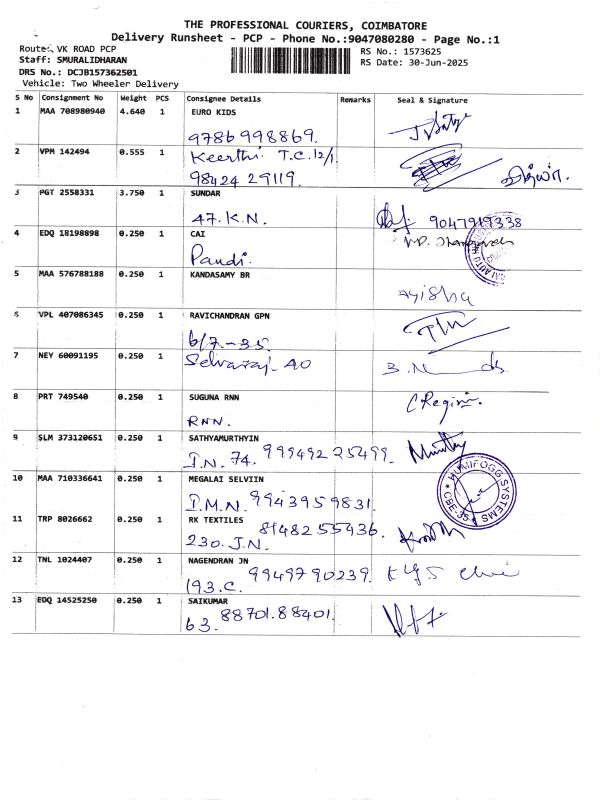 THE PROFESSIONAL COURIERS, COIMBATORE
Delivery Runsheet - PCP - Phone No.:9047080280 - Page No.:1
Route: VK ROAD PCP
RS No.: 1573625
Staff: SMURALIDHARAN
RS Date: 30-Jun-2025
DRS No.: DCJB157362501
Vehicle: Two Wheeler Delivery
S No Consignment No Weight PCS Consignee Details Remarks Seal & Signature
1 MAA 708980940 4.640 1 EURO KIDS
9786998869.
2 VPM 142494 0.555 1 Keerthi. T.C.12/1
98424 29119.
3 PGT 2558331 3.750 1 SUNDAR
47.K.N. 9047919338
4 EDQ 18198898 0.250 1 CAI
Pandi.
5 MAA 576788188 0.250 1 KANDASAMY BR
Ayisha
6 VPL 407086345 0.250 1 RAVICHANDRAN GPN
6/7-35
7 NEY 60091195 0.250 1 Selvaraj. AO
8 PRT 749540 0.250 1 SUGUNA RNN
RNN. C Regini.
9 SLM 373120651 0.250 1 SATHYAMURTHYIN
I.N. 74. 99949225499.
10 MAA 710336641 0.250 1 MEGALAI SELVIIN
I.M.N. 9943959831.
HUMIFOGG SYSTEMS
CBE-35
11 TRP 8026662 0.250 1 RK TEXTILES 8148255936.
230. J.N.
12 TNL 1024407 0.250 1 NAGENDRAN JN
193.C. 9949790239.
13 EDQ 14525250 0.250 1 SAIKUMAR
63. 88701.88401.